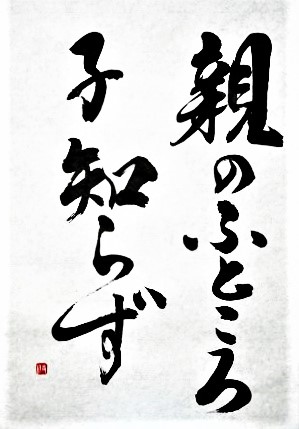 親のふところ
子知らず